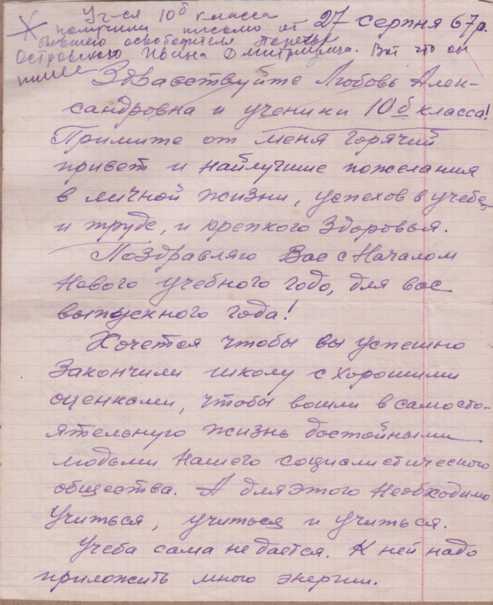 Уч-ся 10б класса
получили письмо от
бывшего освободителя
Островского Ивана Дмитриевича. Вот что он
пишет
27 серпня 67р.
Здравствуйте Любовь Алек-
сандровна и ученики 10б класса!
Примите от меня горячий
привет и наилучшие пожелания
в личной жизни, успехов в учебе,
и труде, и крепкого здоровья.
Поздравляю Вас с Началом
Нового учебного года, для вас
выпускного года!
Хочется чтобы вы успешно
Закончили школу с хорошими
оценками, чтобы вошли в самосто-
ятельную жизнь достойными
людьми нашего социалистического
общества. А для этого необходимо
Учиться, учиться и учиться.
Учеба сама не дается. К ней надо
приложить много энергии.